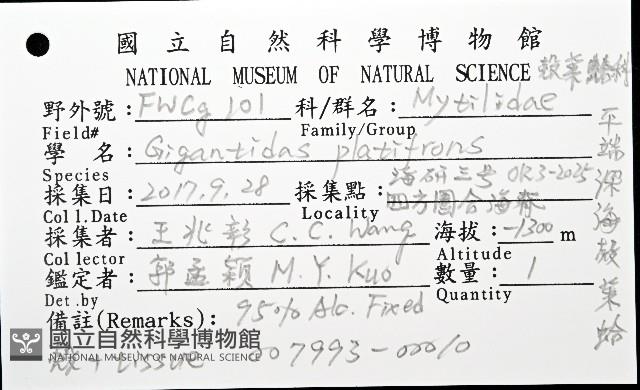 國立自然科學博物館
NATIONAL MUSEUM OF NATURAL SCIENCE 殼菜蛤科
野外號: FWCg 101 科/群名: Mytilidae
Field# Family/Group
學 名: Gigantidas platifrons
Species 海研三號 OR3-2025
採集日: 2017.9.28 採集點: 四方圈合海脊
Coll.Date Locality
採集者: 王兆彰 C.C. Wang 海拔: -1300 m
Collector Altitude
鑑定者: 郭孟穎 M.Y. Kuo 數量: 1
Det.by Quantity
備註(Remarks): 95% Alc. Fixed
殼+tissue 007993-00010
平端深海殼菜蛤
國立自然科學博物館
NATIONAL MUSEUM OF NATURAL SCIENCE